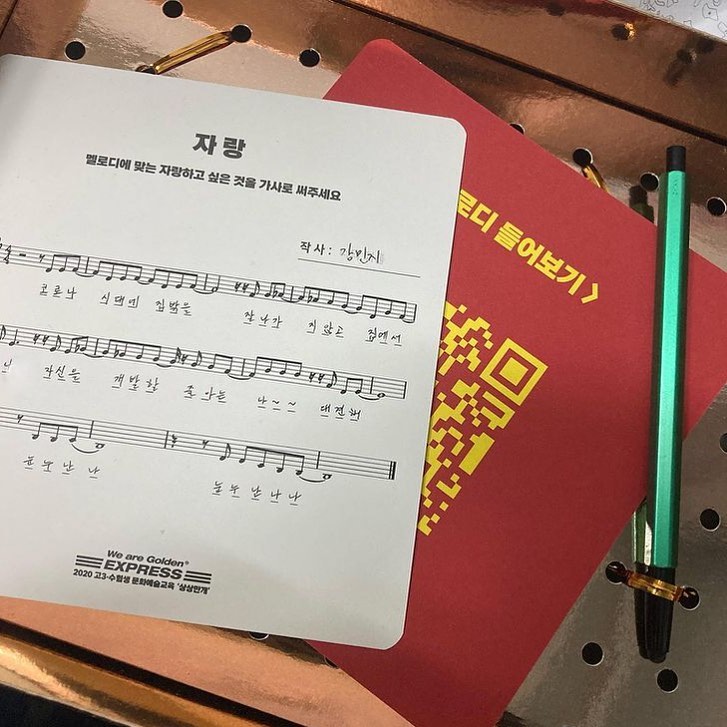 자랑
멜로디에 맞는 자랑하고 싶은 것을 가사로 써주세요
작사: 강민지
코로나 시대에 집밖을 잘 나가 지 않고 집에서
자신을 개발할 줄 아는 나~~ 대견해
눈누난나
눈누난나나
We are Golden
EXPRESS
2020 고3·수험생 문화예술교육 '상상만개'
로디 들어보기 〉